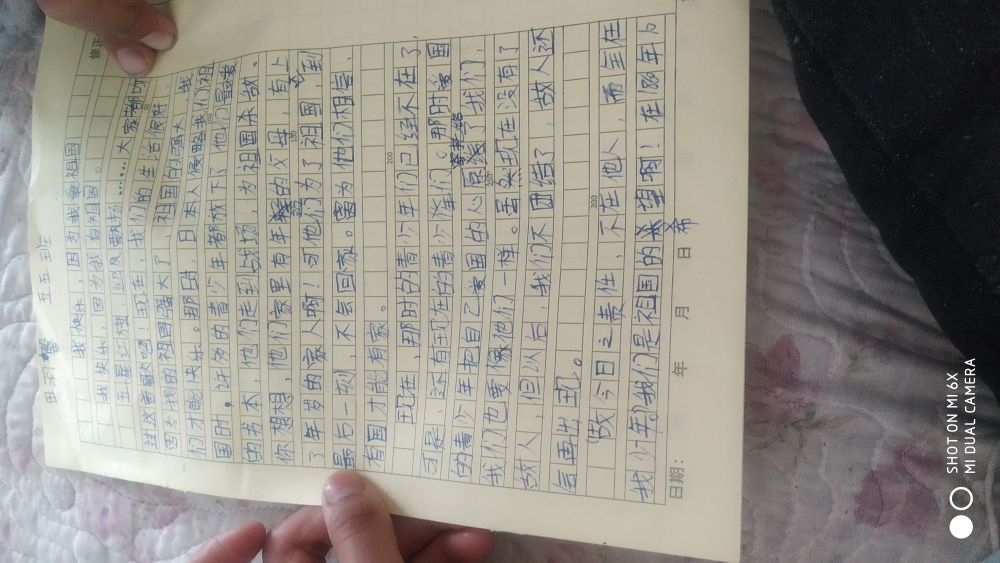 五五班
我快乐,因为我爱祖国
我快乐,因为我有祖国。
五星红旗,迎风飘扬……大家都听
过这首歌吧!现在,我们的生活便好,
因为我的祖国强大了,祖国的强大了,我
们才能快乐。那时,日本人侵略我们祖
国时,许多的青少年都放下了他们最爱
的书本,他们走到战场,为祖国杀敌。
你想想,他们家里有年的父母,有上
了年岁的家人啊!可他们为了祖国,到
最后一刻,不会回家。因为他们相信,
有国才能有家。
现在,那时的青少年们已经不在了,
可是,还有现在的青少年们。那时爱国
的青少年把自己爱国的心寄给了我们,
我们也要像他们一样。虽然现在没有了
敌人,但以后,我们不团结了,敌人还
会再出现。
"故今日之责任,不在他人,而全在
我少年。"我们是祖国的希望啊!在
日期: 年 月 日
300
200
SHOT ON MI 6X
MI DUAL CAMERA